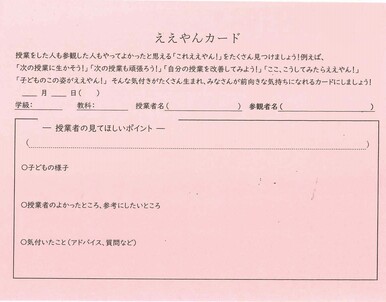 ええやんカード
授業をした人も参観した人もやってよかったと思える「これええやん!」をたくさん見つけましょう!例えば、
「次の授業に生かそう!」「次の授業も頑張ろう!」「自分の授業を改善してみよう!」「ここ、こうしてみたらええやん!」
「子どものこの姿がええやん!」 そんな気付きがたくさん生まれ、みなさんが前向きな気持ちになれるカードにしましょう!
＿＿月＿＿日( )
学級: 教科: 授業者名( ) 参観者名( )
― 授業者の見てほしいポイント ―
( )
○子どもの様子
○授業者のよかったところ、参考にしたいところ
○気付いたこと(アドバイス、質問など)